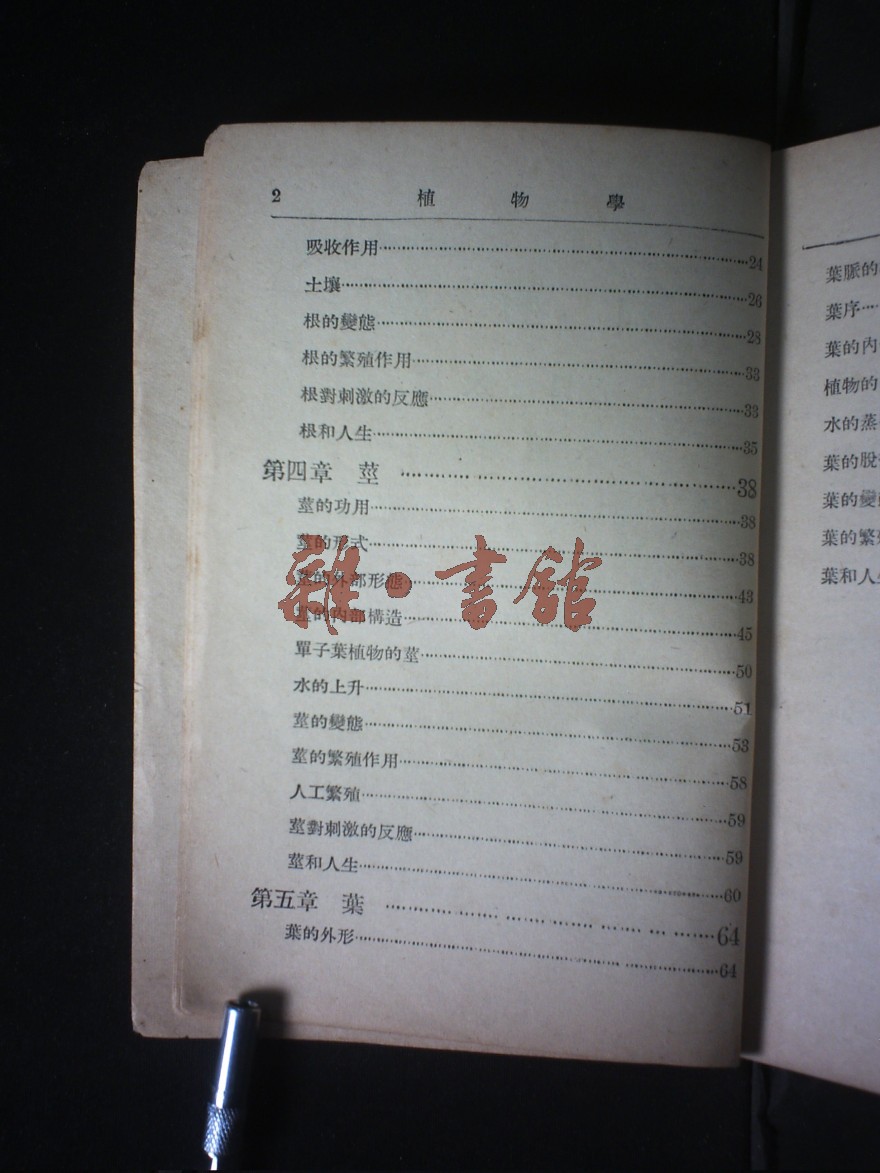 2 植物學
吸收作用……24
土壤……26
根的變態……28
根的繁殖作用……33
根對刺激的反應……33
根和人生……35
第四章 莖……38
莖的功用……38
莖的形式……38
莖的外部形態……43
莖的內部構造……45
單子葉植物的莖……50
水的上升……51
莖的變態……53
莖的繁殖作用……58
人工繁殖……59
莖對刺激的反應……59
莖和人生……60
第五章 葉……64
葉的外形……64
雜·書館
葉脈的
葉序……
葉的內
植物的
水的蒸
葉的脫
葉的變
葉的繁
葉和人